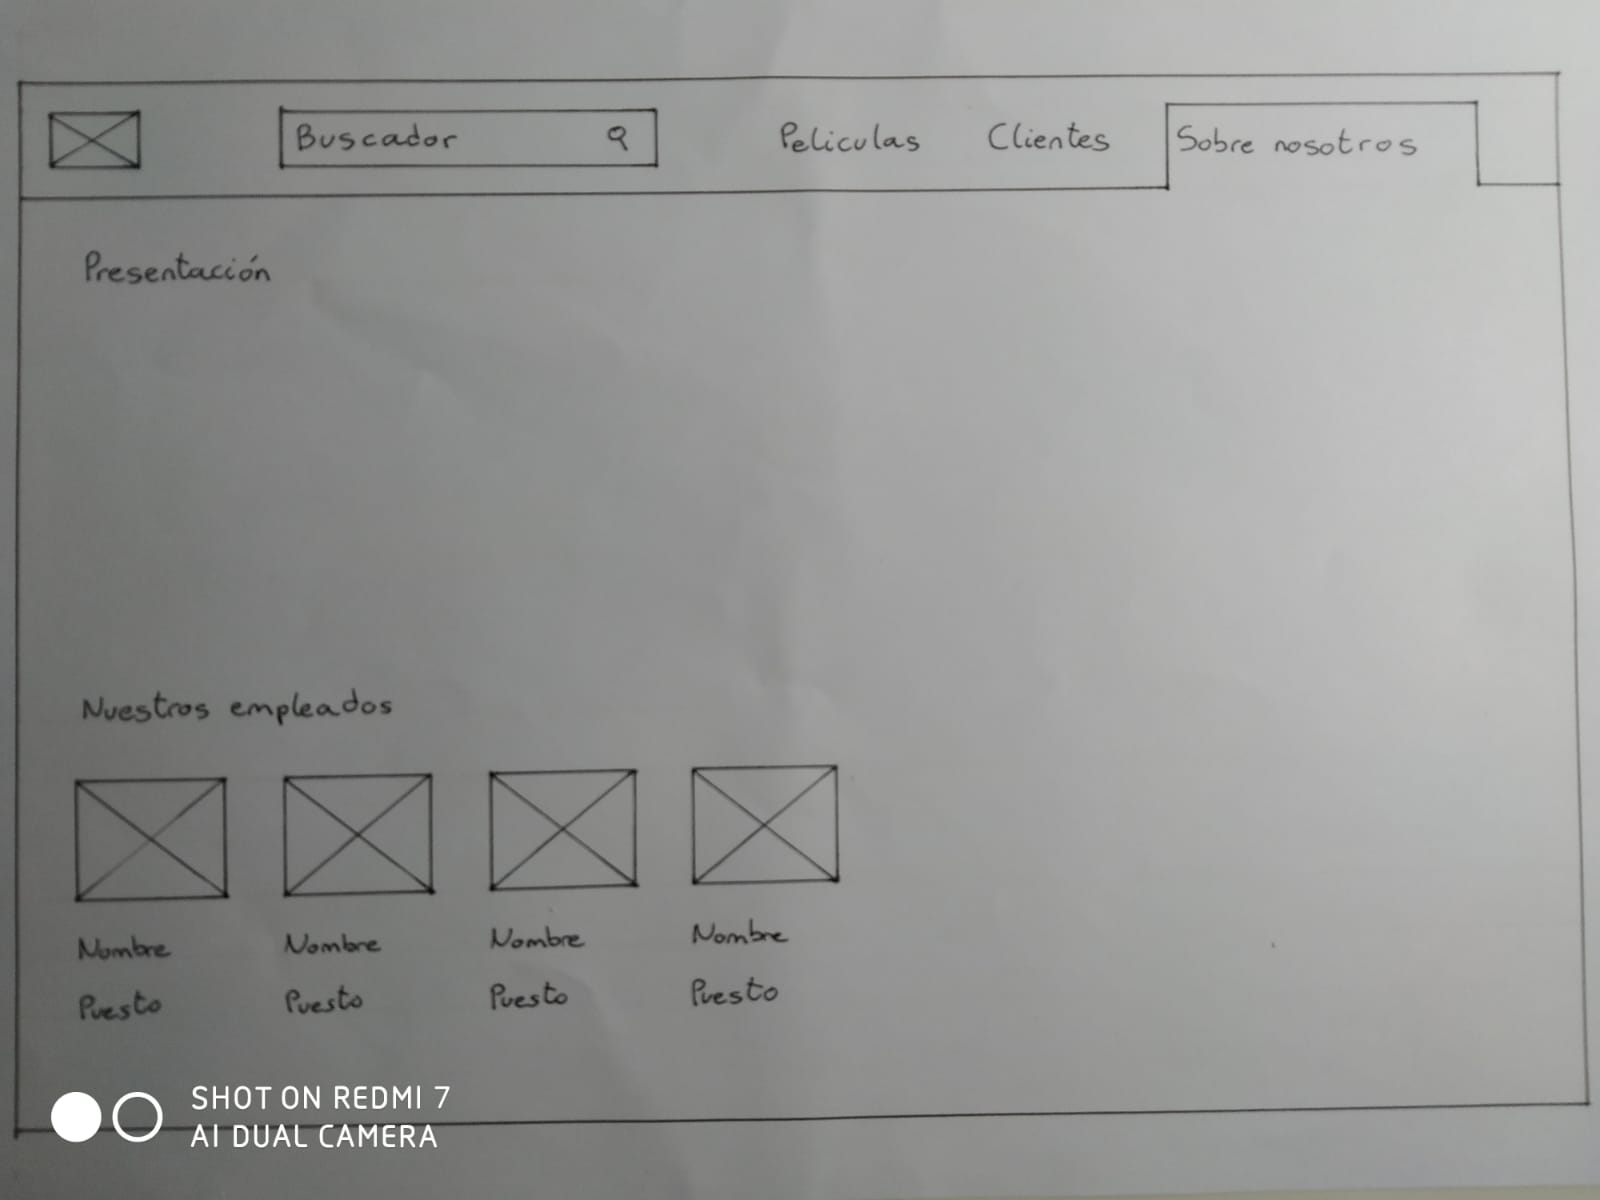 Buscador
Peliculas
Clientes
Sobre nosotros
Presentación
Nuestros empleados
Nombre Nombre Nombre Nombre
Puesto Puesto Puesto Puesto
SHOT ON REDMI 7
AI DUAL CAMERA